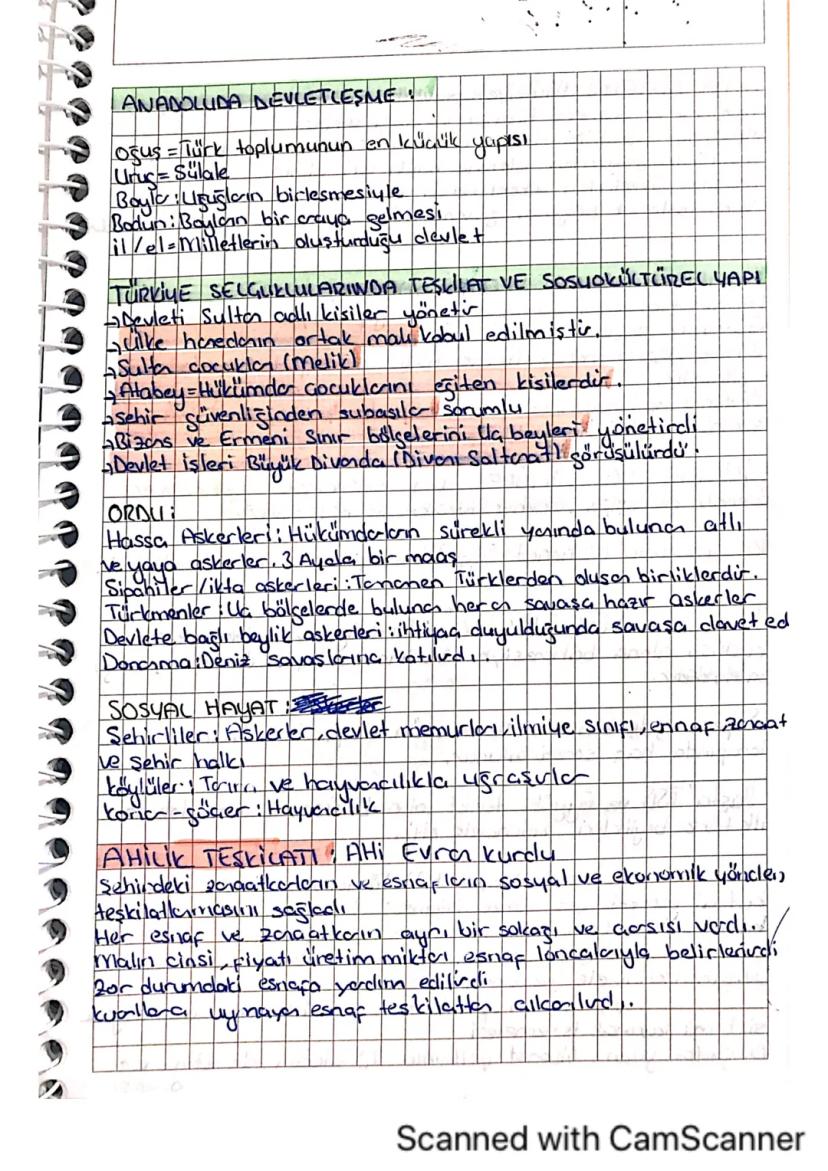 ANADOLUDA DEVLETLEŞME :
Oğuş = Türk toplumunun en küçük yapısı
Uruğ = Sülale
Boylar : Uruğların birleşmesiyle
Bodun : Boyların bir araya gelmesi
il / el = Milletlerin oluşturduğu devlet
TÜRKİYE SELÇUKLULARINDA TEŞKİLAT VE SOSYOKÜLTÜREL YAPI
→ Devleti Sultan adlı kişiler yönetir
→ Ülke hanedanın ortak malı kabul edilmiştir.
→ Sultan çocukları (Melik)
→ Atabey = Hükümdar çocuklarını eğiten kişilerdir.
→ Şehir güvenliğinden subaşılar sorumlu
→ Bizans ve Ermeni Sınır bölgelerini Uç beyleri yönetirdi
→ Devlet işleri Büyük Divanda (Divanı Saltanat) görüşülürdü.
ORDU :
Hassa Askerleri : Hükümdarların sürekli yanında bulunan atlı
ve yaya askerler. 3 Ayda bir maaş
Sipahiler / ikta askerleri : Tamamen Türklerden oluşan birliklerdir.
Türkmenler : Uç bölgelerde bulunan her an savaşa hazır askerler
Devlete bağlı beylik askerleri : ihtiyaç duyulduğunda savaşa davet ed
Donanma : Deniz savaşlarına katılırdı.
SOSYAL HAYAT :
Şehirliler : Askerler, devlet memurları, ilmiye sınıfı, ennaf zanaat
ve şehir halkı
Köylüler : Tarım ve hayvancılıkla uğraşırlar
Konar - göçer : Hayvancılık
AHİLİK TEŞKİLATI : AHi Evran kurdu
Şehirdeki zanaatkarların ve esnafların sosyal ve ekonomik yönden
teşkilatlanmasını sağladı
Her esnaf ve zanaatkarın ayrı bir sokağı ve çarşısı vardı.
Malın cinsi, fiyatı üretim miktarı esnaf loncalarıyla belirlenirdi
Zor durumdaki esnafa yardım edilirdi
Kurallara uymayan esnaf teşkilattan çıkarılırdı.
Scanned with CamScanner